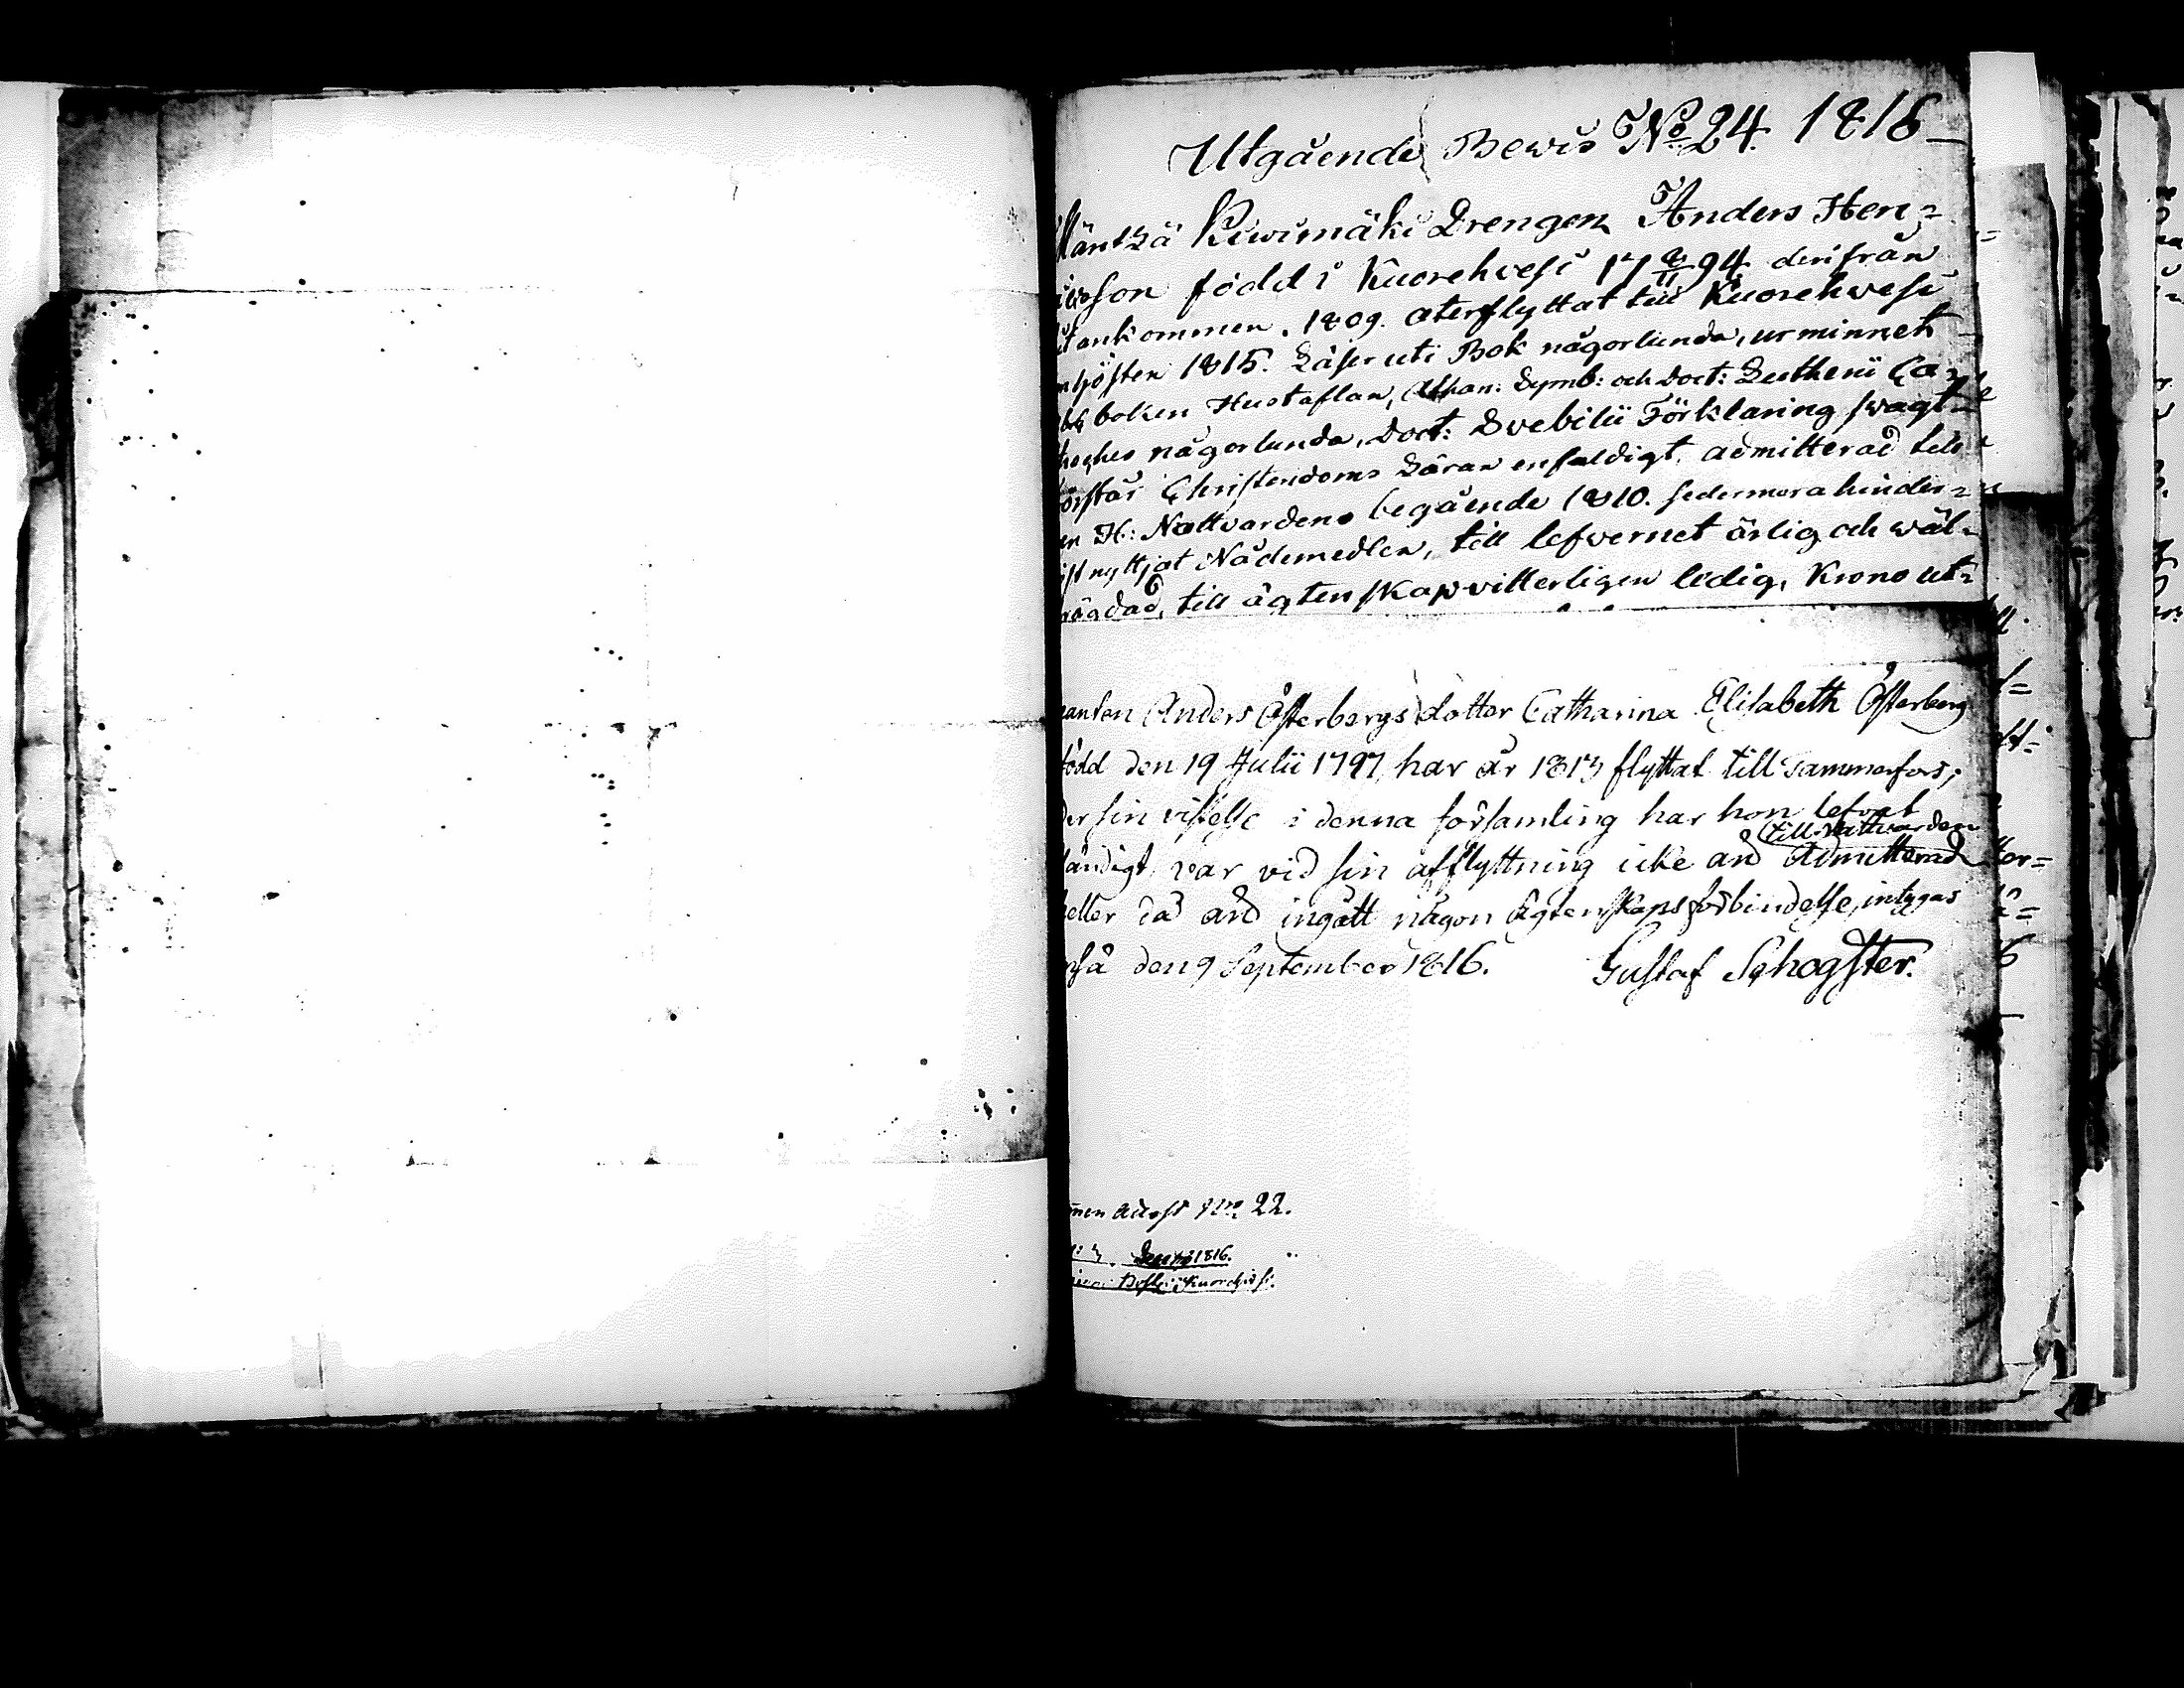 Utgående Bewis No 24. 1816
Mäntzä Kiwimäki Drengen Anders Hen=
ricsson född i Kuorehvesi 17 8/11 94 derifrån
hit ankommen. 1809. återflyttat till Kuorehvesi
om hösten 1815. Läser uti Bok någorlunda, ur minnet
abc boken Hustaflan, Athan: Symb: och Doct: Lutherii Ca=
theches någorlunda, Doct: Svebilii Förklaring swagt
förstår Christendoms Läran enfaldigt, admitterad till
den H: Nattvardens begående 1810. sedermera hinder=
löst nyttjat Nådemedlen, till lefvernet ärlig och wäl=
frägdad, till ägtenskap vitterligen ledig, Krono ut=
Anders Österbergs dotter Catharina Elisabeth Österberg
född den 19 Julii 1797, har år 1813 flyttat till Tammerfors;
under sin vistelse i denna församling har hon lefvat
till Nattvarden
ständigt, var vid sin afflyttning icke än Admitterad
heller då än ingått någon Ägtenskaps förbindelse, intygas
den 9 September 1816. Gustaf Schogster.
22.
1816.